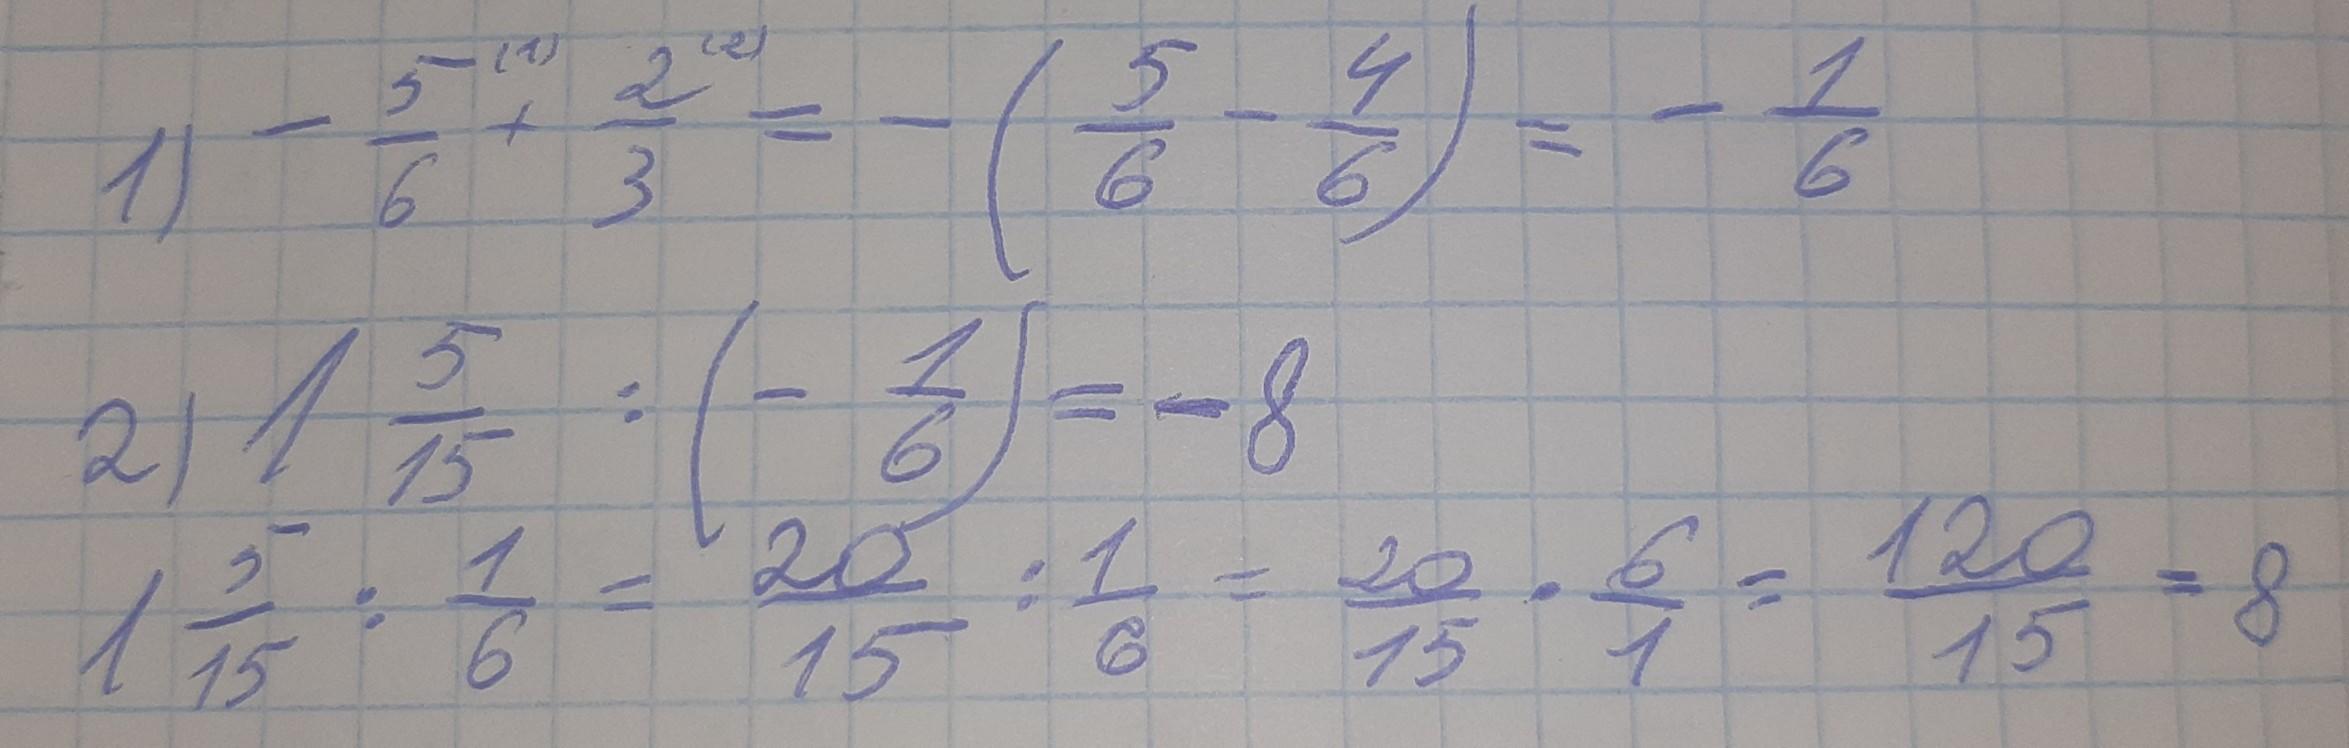 1) - 5/6 (1) + 2/3 (2) = - (5/6 - 4/6) = - 1/6
2) 1 5/15 : (- 1/6) = - 8
1 5/15 : 1/6 = 20/15 : 1/6 = 20/15 · 6/1 = 120/15 = 8